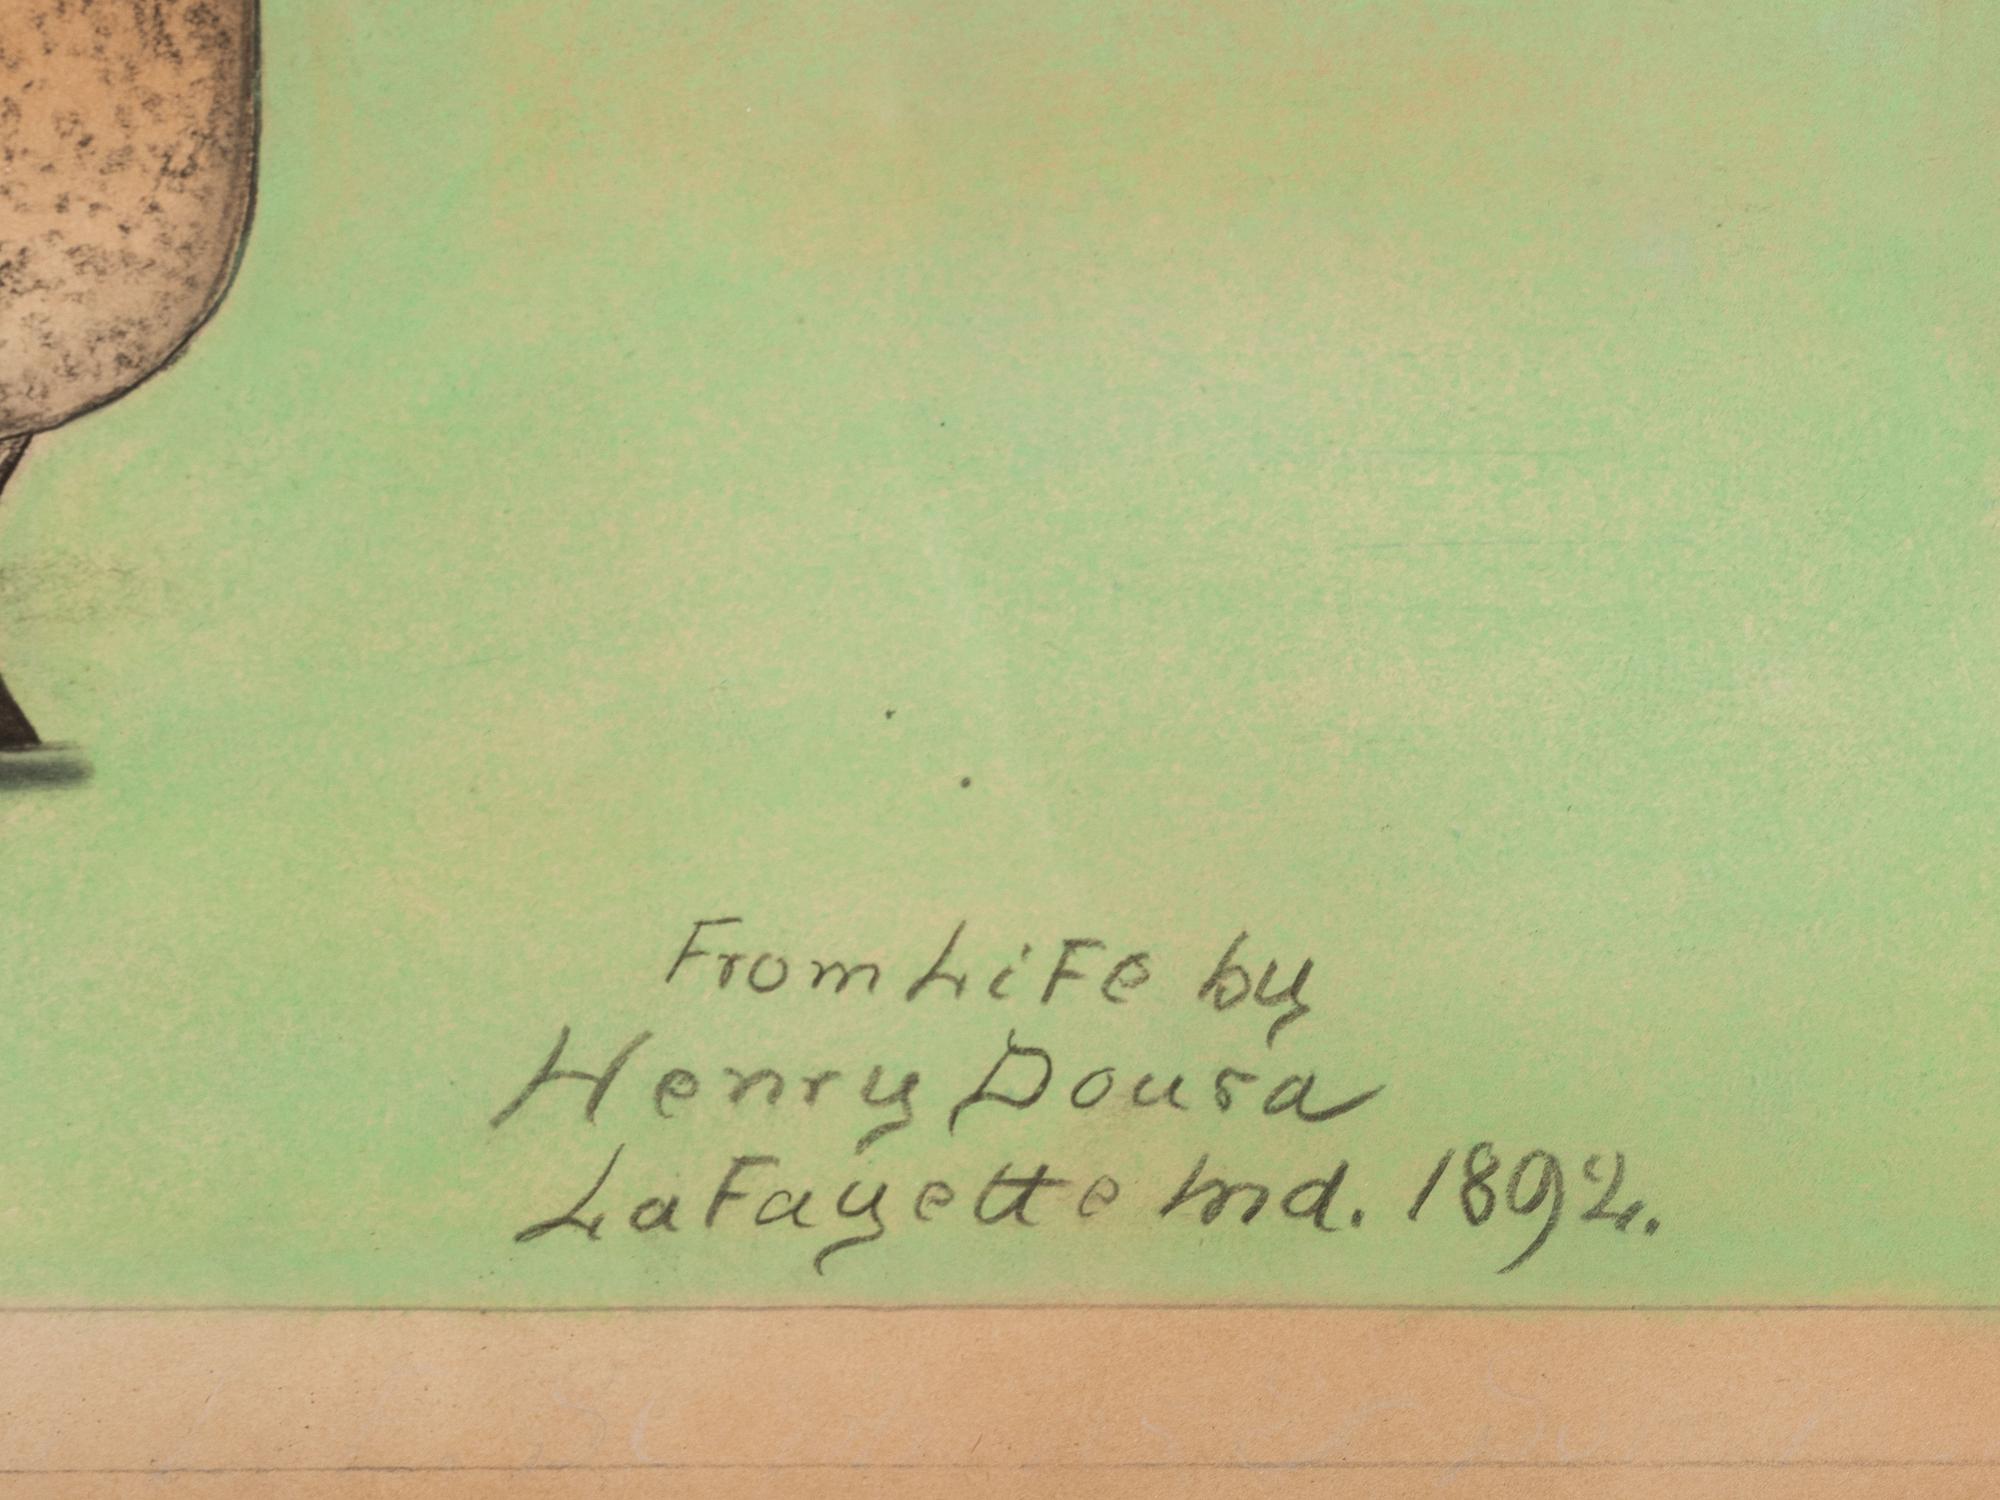 From LiFe by
Henry Dousa
LaFayette Ind. 1892.